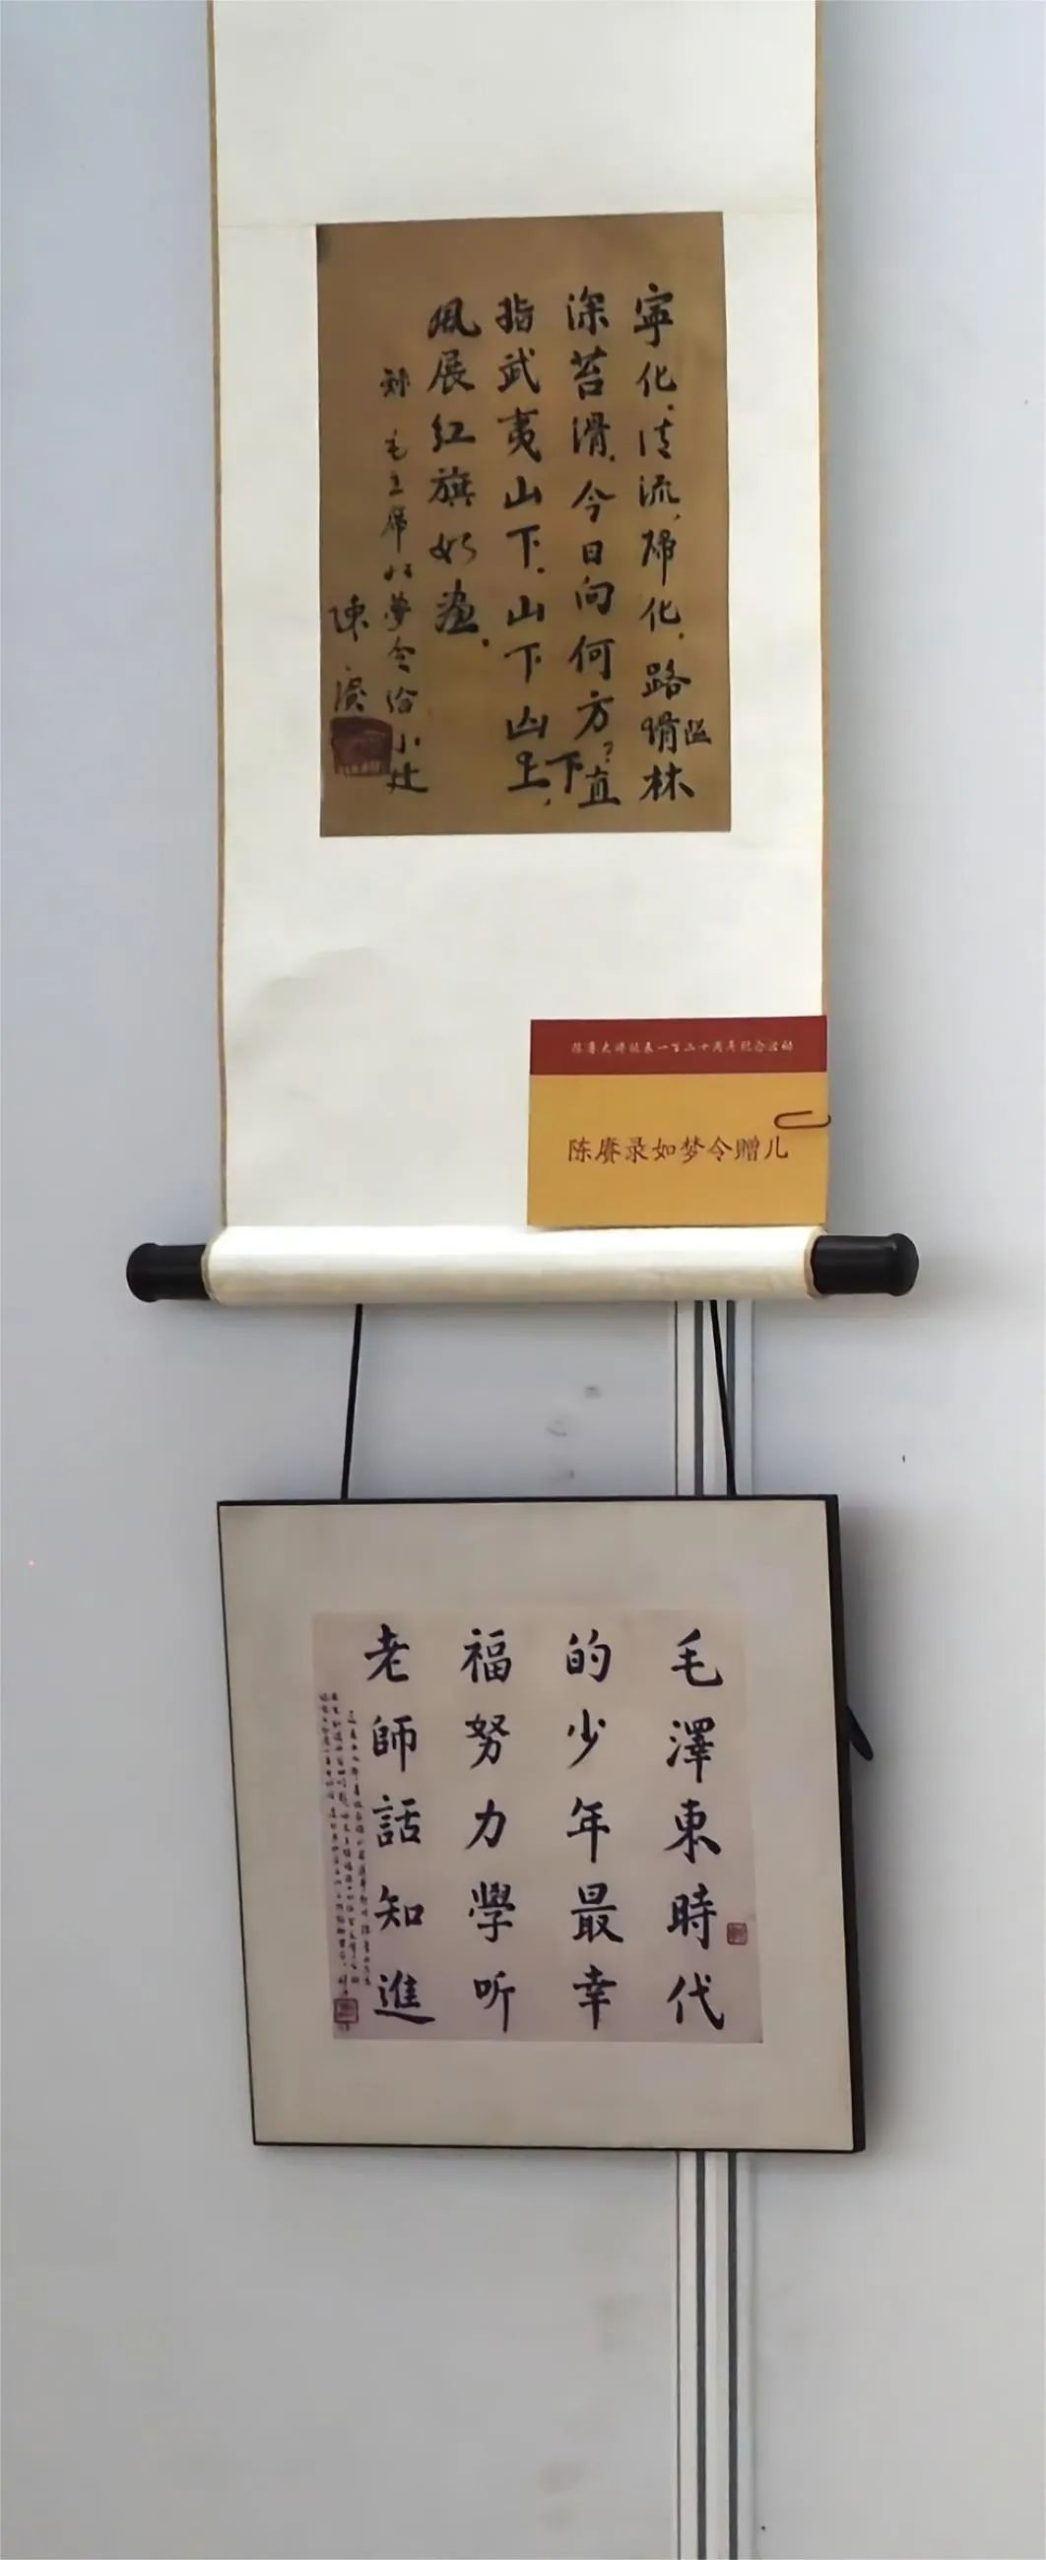 寧化、清流,帰化,路隘林
深苔滑。今日向何方?直
指武夷山下。山下山下,
風展红旗如畫。
录 毛主席如夢令给小建
陳賡
陈赓大将诞辰一百二十周年纪念活动
陈赓录如梦令赠儿
毛澤東時代
的少年最幸
福努力學听
老師話知進